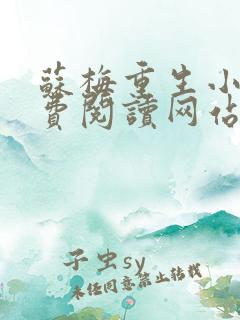 蘇梅重生小
費閱讀网佔
子虫sy
未经同意禁止转载